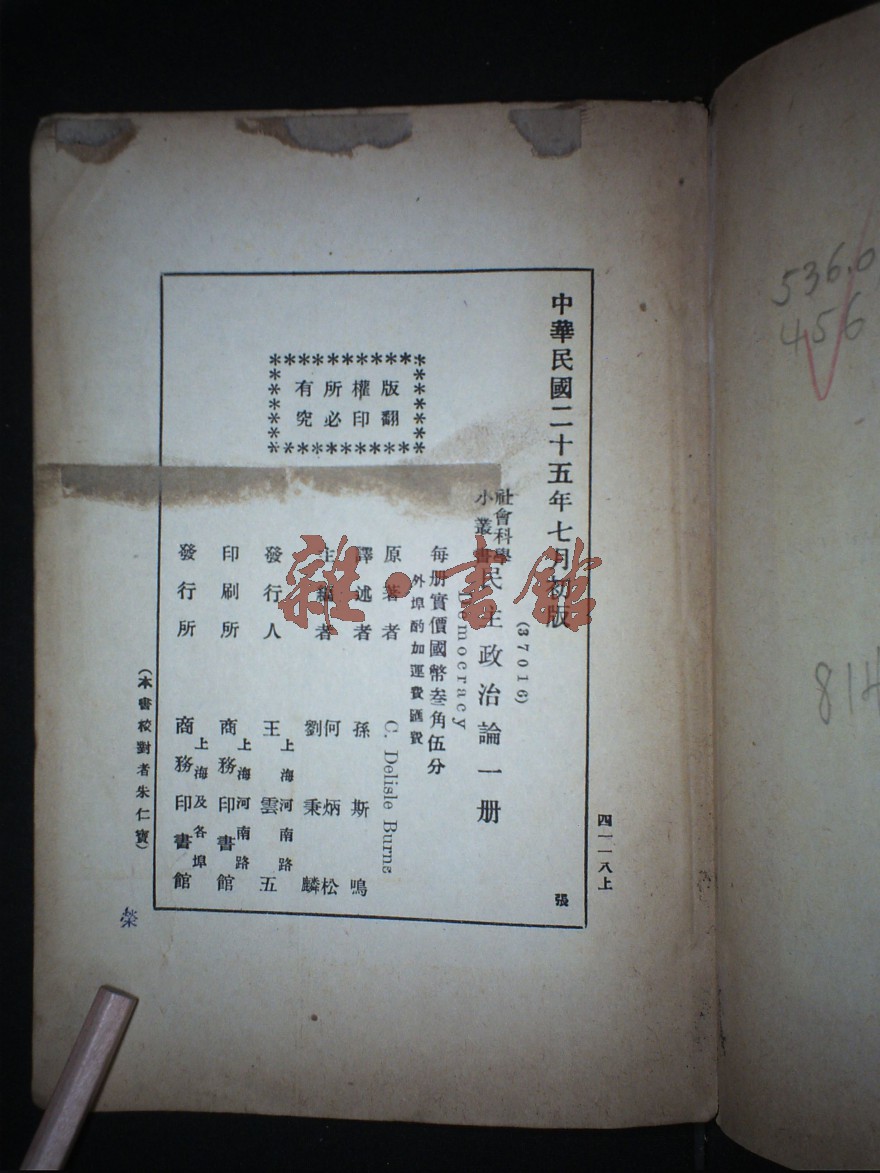 中華民國二十五年七月初版
四一一八上
張
(37016)
社會科學
小叢書
民主政治論一册
Democracy
每册實價國幣叁角伍分
外埠酌加運費匯費
版權所有
翻印必究
原著者 C. Delisle Burns
譯述者 孫斯鳴
主編者 何炳松 劉秉麟
發行人 王雲五
上海河南路
印刷所 商務印書館
上海河南路
發行所 商務印書館
上海及各埠
(本書校對者朱仁寶)
榮
雜·書館
536.0
456
814